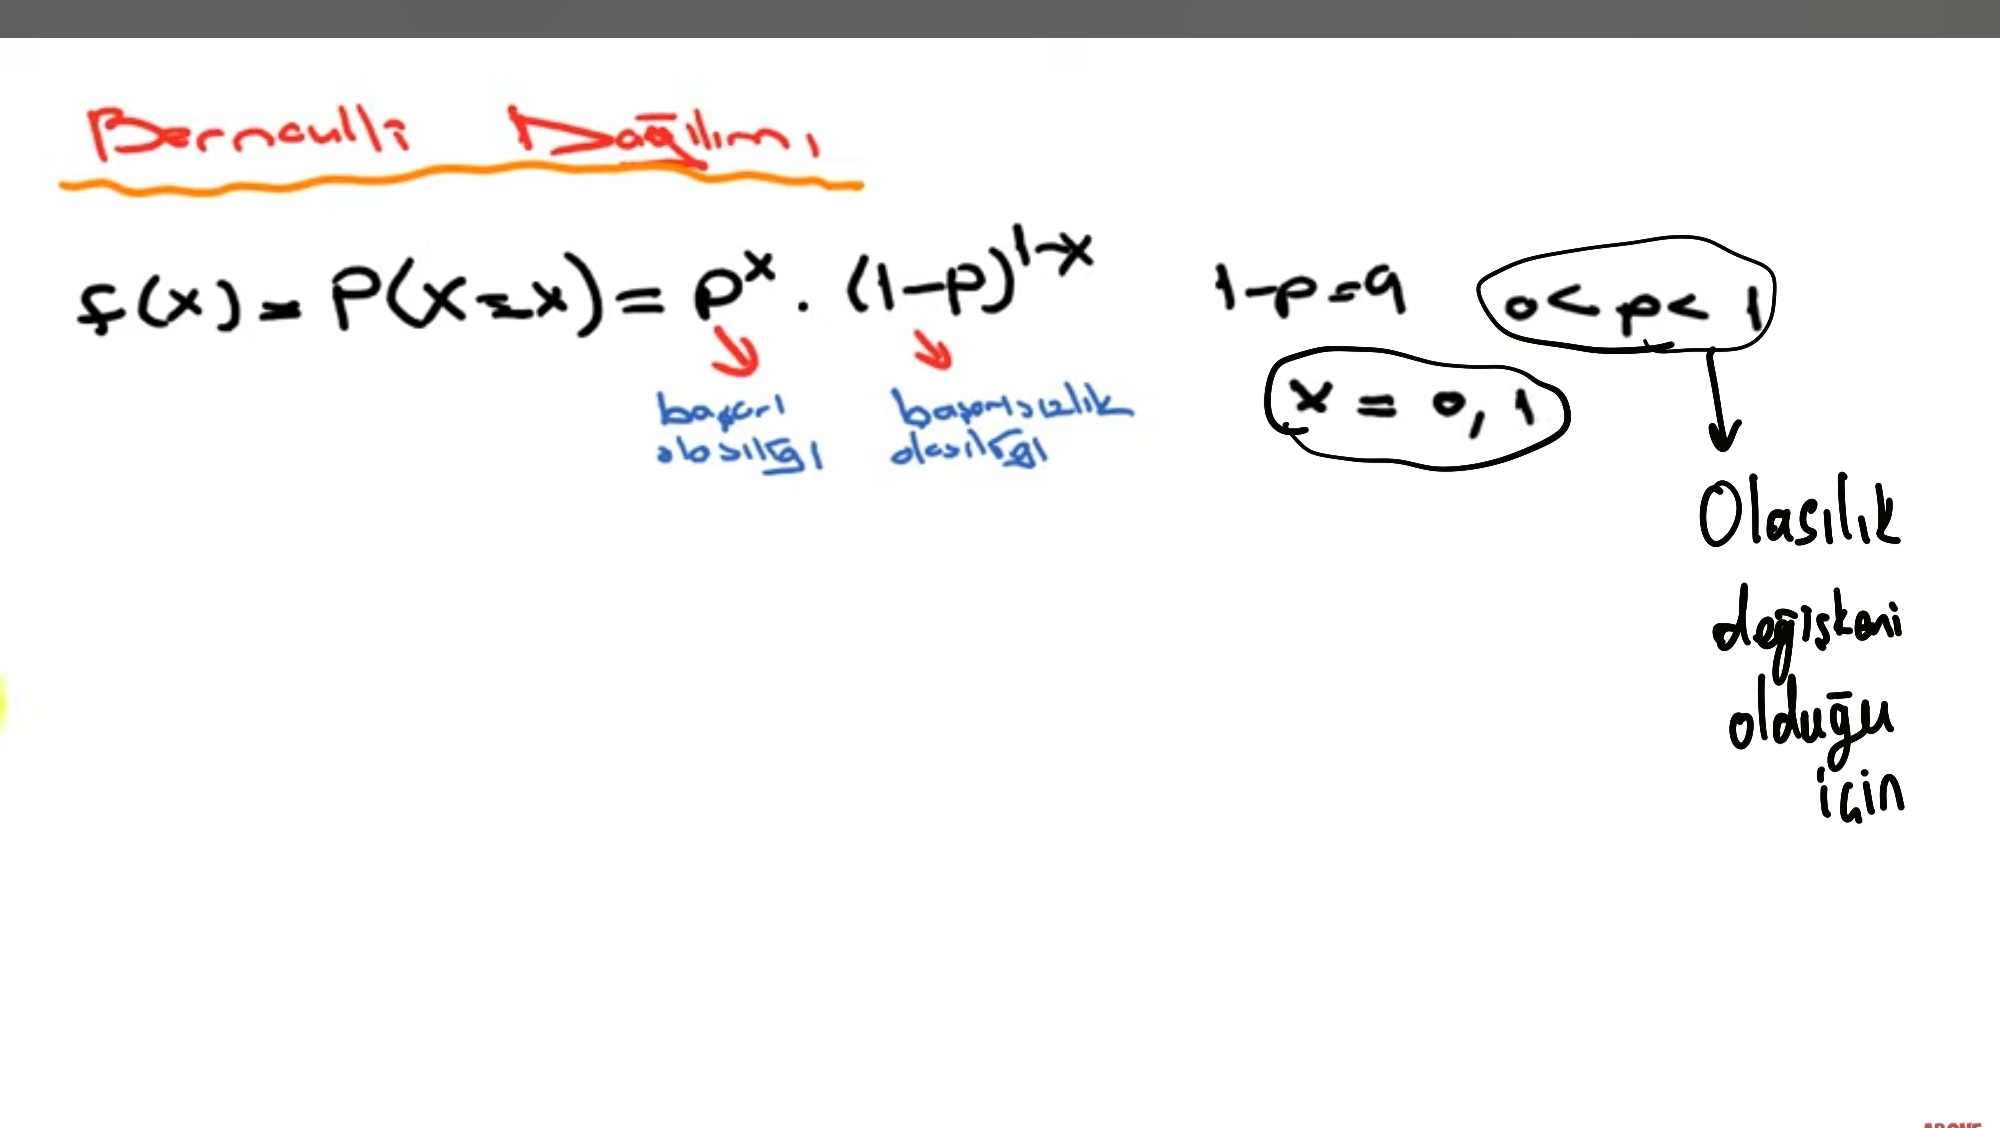 Bernoulli Dağılımı
f(x) = P(X=x) = p^x . (1-p)^{1-x} 1-p=q 0<p<1
x = 0, 1
başarı olasılığı
başarısızlık olasılığı
Olasılık
değişkeni
olduğu
için